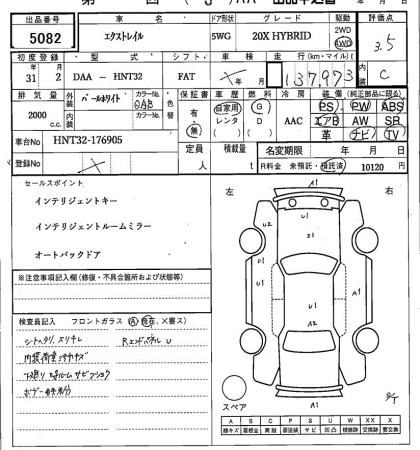 出品番号 車名 ドア形状 グレード 駆動 評価点
5082 エクストレイル 5WG 20X HYBRID 2WD 4WD 3.5
初度登録 型式 シフト 車検 走行(km・マイル) 内装
31 2 DAA - HNT32 FAT 年 月 137,973 C
排気量 外装 パールホワイト カラーNo. QAB 色替 保証書 車歴 燃料 冷房 装備(純正部品に限る)
2000 c.c. 内装 カラーNo. 有・無 自家用 レンタ G D AAC PS PW ABS
エアB AW SR
革 ナビ TV
車台No HNT32-176905 定員 人 積載量 t 名変期限 年 月 日
登録No R料金 未預託・預託済 10120 円
セールスポイント
インテリジェントキー
インテリジェントルームミラー
オートバックドア
※注意事項記入欄(修復・不具合箇所および状態等)
検査員記入 フロントガラス(A 飛石、×要ス)
シートスリ、スリキレ Rエンドパネル U
左 右
A1
U2
S1
S1
U1
U1
U1
A1
A2
A1
スペア
A B C P S U W X XX X
線キズ 要板金 腐蝕 要塗装 サビ 凹凸 補修跡 交換跡 要交換